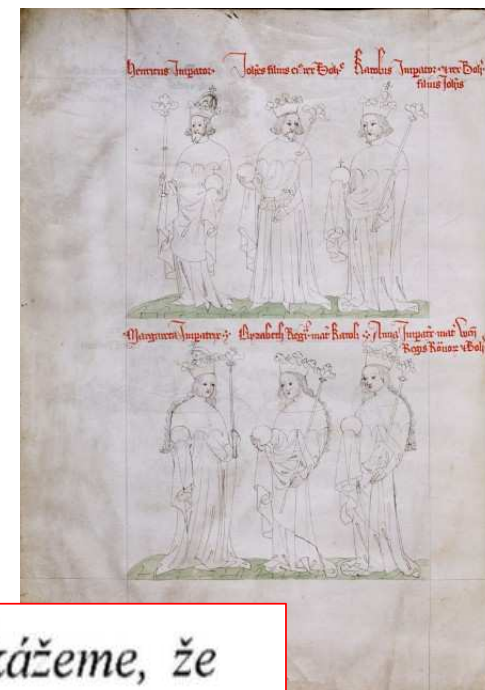 Henricus Imperator Johes filius ei rex Boh Karolus Imperator rex Boh
filius Johis
Margareta Imperatrix Elyzabeth Regi mat Karoli Anna Imperat mat
Regis Boh
kážeme, že